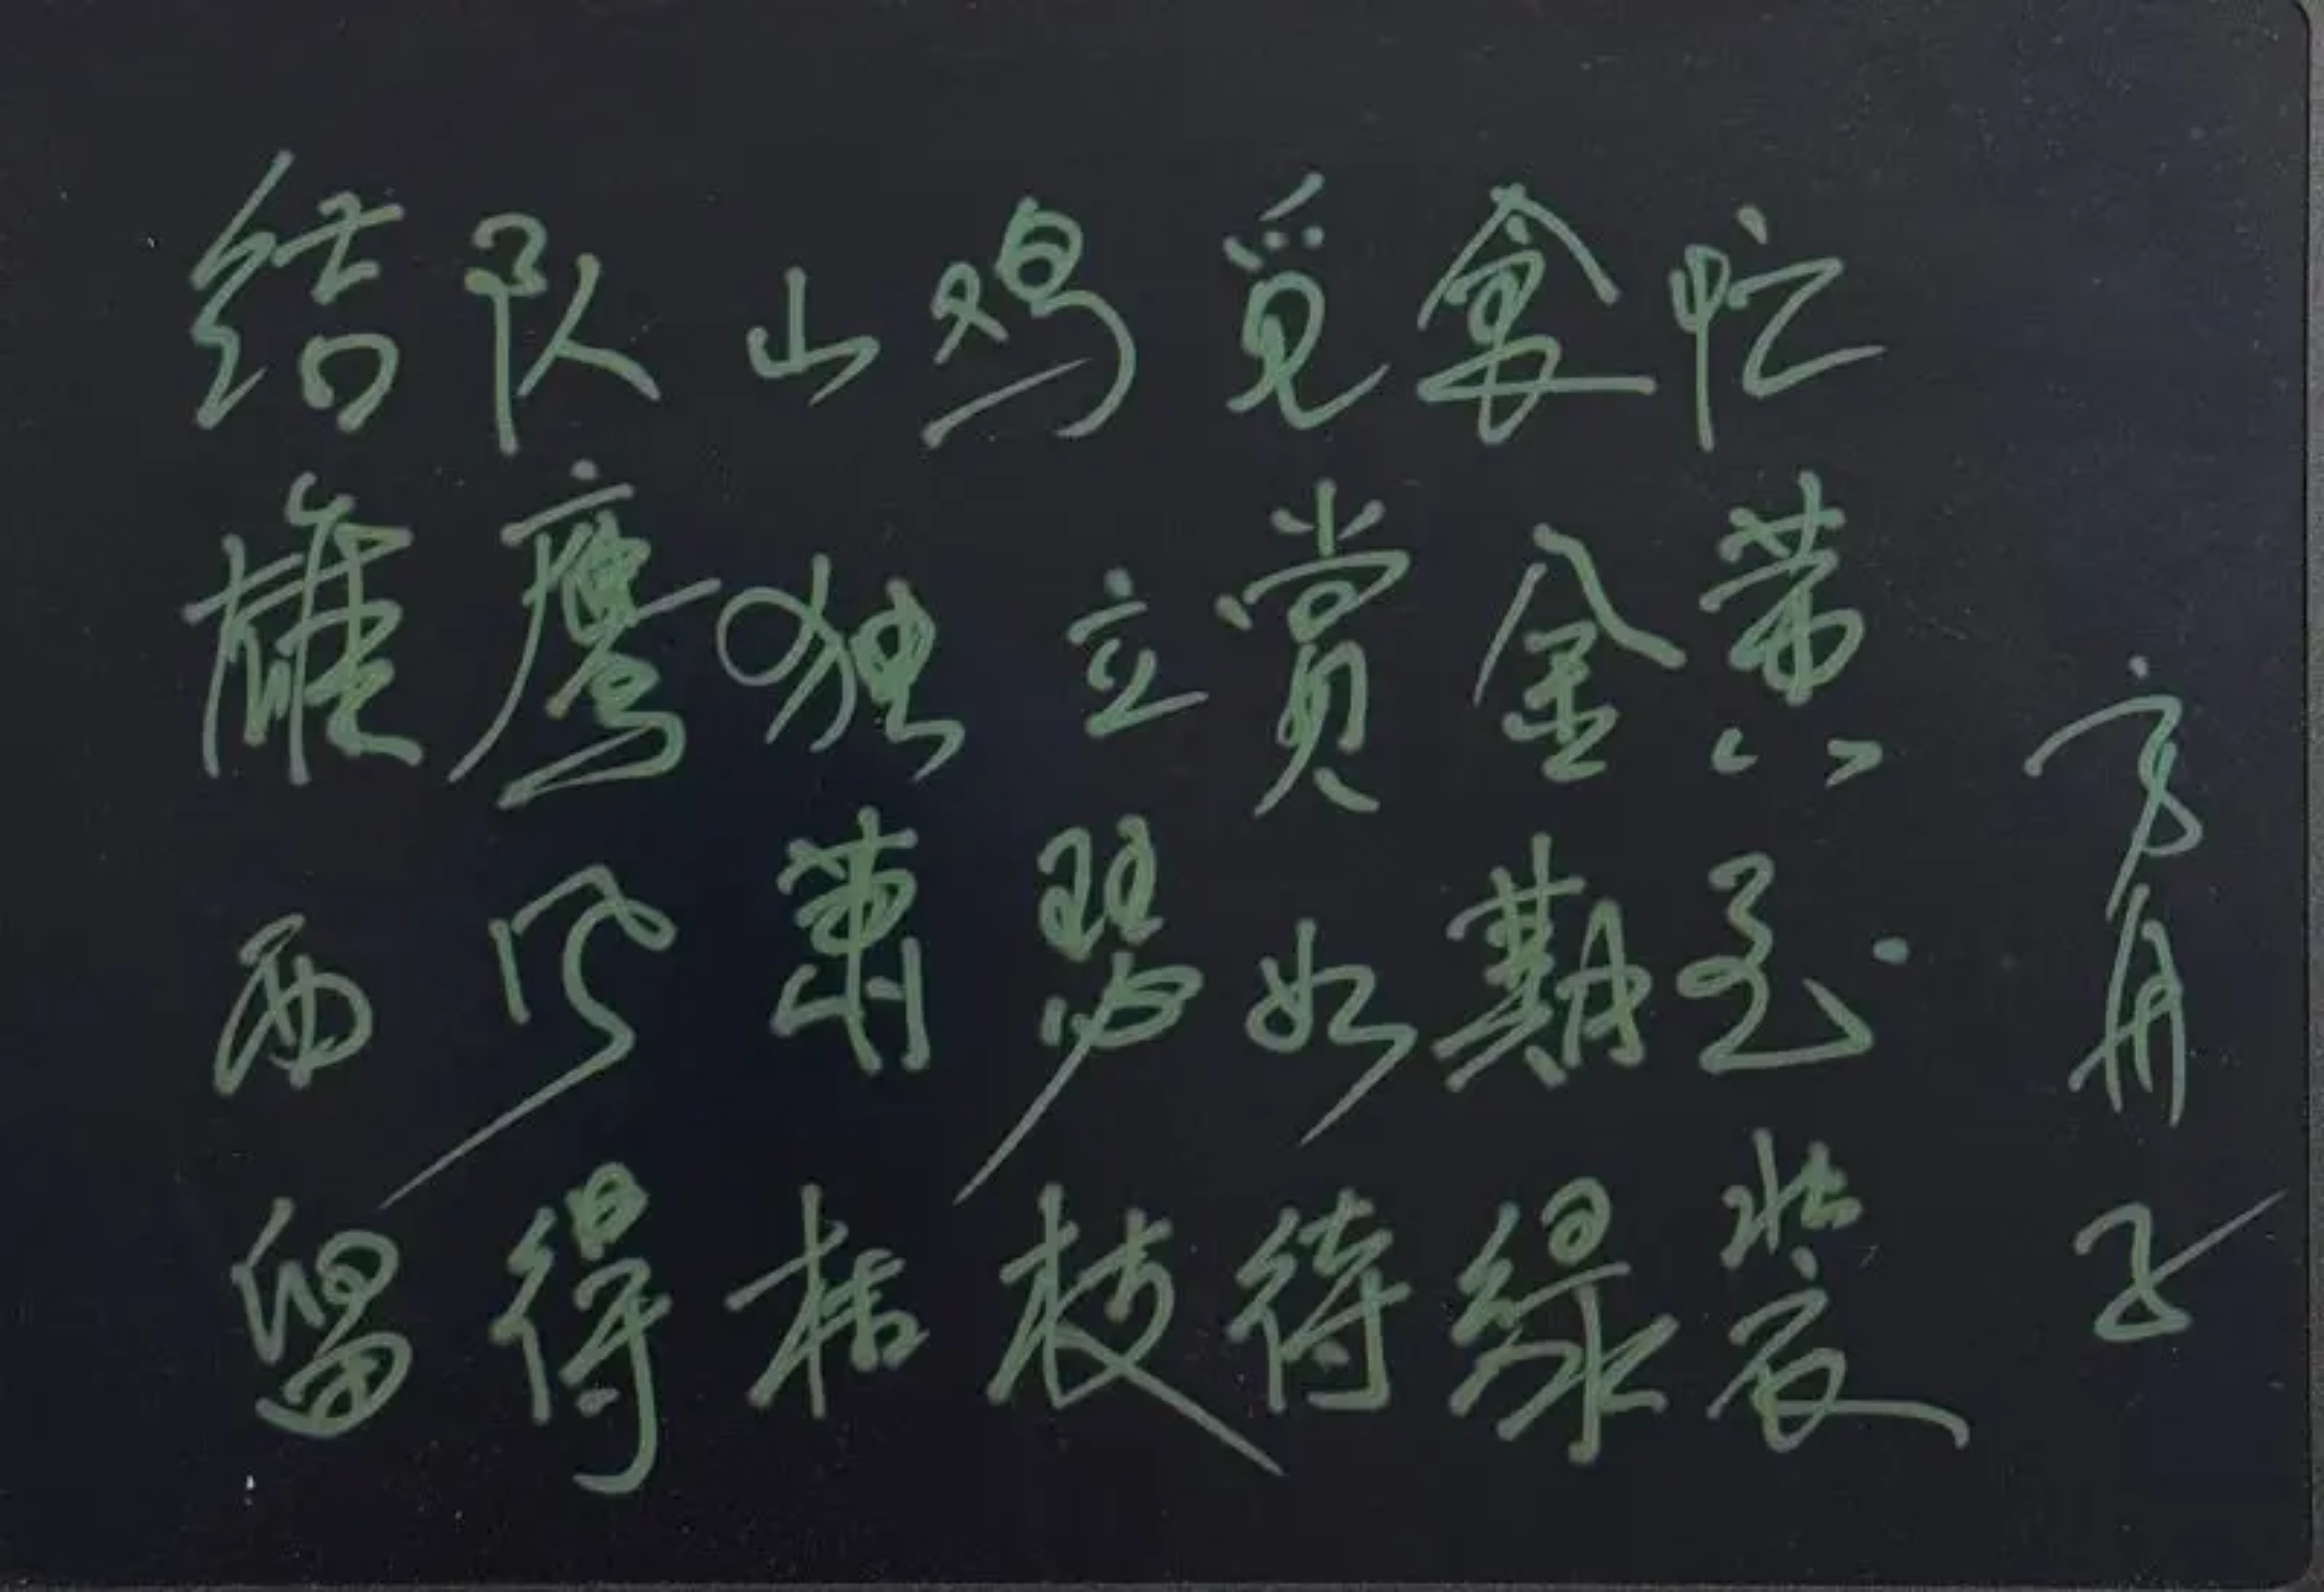 结队山鸡觅食忙
雄鹰独立赏金黄
西风萧瑟如期至
留得枯枝待绿装